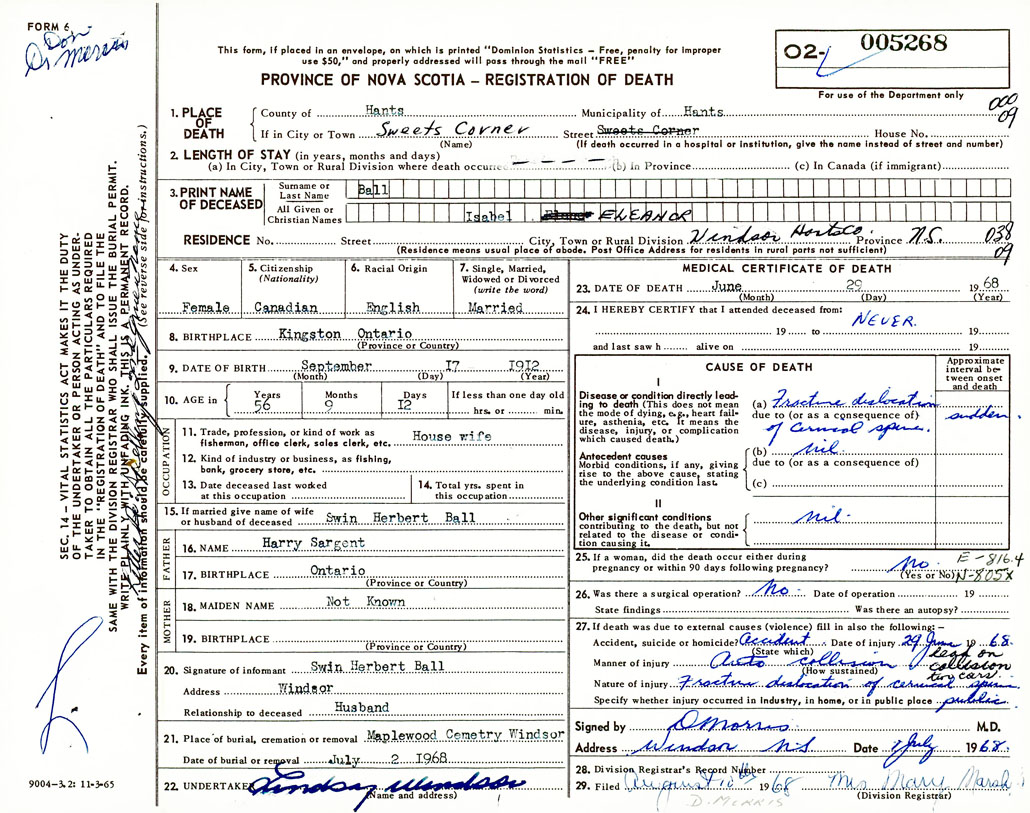 FORM 6
Don
Dr Morris
This form, if placed in an envelope, on which is printed "Dominion Statistics – Free, penalty for improper
use $50," and properly addressed will pass through the mail "FREE"
PROVINCE OF NOVA SCOTIA – REGISTRATION OF DEATH
02- 005268
For use of the Department only
000
09
1. PLACE OF DEATH
County of Hants Municipality of Hants
If in City or Town Sweets Corner Street Sweets Corner House No.
(Name) (If death occurred in a hospital or institution, give the name instead of street and number)
2. LENGTH OF STAY (in years, months and days)
(a) In City, Town or Rural Division where death occurred (b) in Province (c) In Canada (if immigrant)
3. PRINT NAME OF DECEASED
Surname or Last Name Ball
All Given or Christian Names Isabel ELEANOR
RESIDENCE No. Street City, Town or Rural Division Windsor Hants Co. Province N.S. 038
09
(Residence means usual place of abode. Post Office Address for residents in rural parts not sufficient)
4. Sex
Female
5. Citizenship
(Nationality)
Canadian
6. Racial Origin
English
7. Single, Married,
Widowed or Divorced
(write the word)
Married
8. BIRTHPLACE Kingston Ontario
(Province or Country)
9. DATE OF BIRTH September 17 1912
(Month) (Day) (Year)
10. AGE in Years Months Days If less than one day old
56 9 12 hrs. or min.
OCCUPATION
11. Trade, profession, or kind of work as
fisherman, office clerk, sales clerk, etc. House wife
12. Kind of industry or business, as fishing,
bank, grocery store, etc.
13. Date deceased last worked
at this occupation
14. Total yrs. spent in
this occupation
15. If married give name of wife
or husband of deceased Swin Herbert Ball
FATHER
16. NAME Harry Sargent
17. BIRTHPLACE Ontario
(Province or Country)
MOTHER
18. MAIDEN NAME Not Known
19. BIRTHPLACE
(Province or Country)
20. Signature of informant Swin Herbert Ball
Address Windsor
Relationship to deceased Husband
21. Place of burial, cremation or removal Maplewood Cemetry Windsor
Date of burial or removal July 2 1968
22. UNDERTAKER Lindsay Windsor
(Name and address)
MEDICAL CERTIFICATE OF DEATH
23. DATE OF DEATH June 29 1968
(Month) (Day) (Year)
24. I HEREBY CERTIFY that I attended deceased from:
NEVER.
19 to 19
and last saw h alive on 19
CAUSE OF DEATH
Approximate
interval be-
tween onset
and death
I
Disease or condition directly lead-
ing to death (This does not mean
the mode of dying, e.g., heart fail-
ure, asthenia, etc. It means the
disease, injury, or complication
which caused death.)
(a) Fracture dislocation
due to (or as a consequence of) sudden
of cervical spine.
Antecedent causes
Morbid conditions, if any, giving
rise to the above cause, stating
the underlying condition last.
(b) nil.
due to (or as a consequence of)
(c)
II
Other significant conditions
contributing to the death, but not
related to the disease or condi-
tion causing it.
nil.
25. If a woman, did the death occur either during
pregnancy or within 90 days following pregnancy? No.
(Yes or No)
E-816.4
N-805X
26. Was there a surgical operation? No. Date of operation 19
State findings Was there an autopsy?
27. If death was due to external causes (violence) fill in also the following:–
Accident, suicide or homicide? Accident Date of injury 29 June 1968.
(State which)
Manner of injury Auto collision
(How sustained)
head on
collision
two cars.
Nature of injury Fracture dislocation of cervical spine.
Specify whether injury occurred in industry, in home, or in public place public.
Signed by D Morris M.D.
Address Windsor N.S Date 2 July 1968.
28. Division Registrar's Record Number
29. Filed August 10th 1968 Mrs Mary Marsh
(Division Registrar)
D. MORRIS
SEC. 14 – VITAL STATISTICS ACT MAKES IT THE DUTY
OF THE UNDERTAKER OR PERSON ACTING AS UNDER-
TAKER TO OBTAIN ALL THE PARTICULARS REQUIRED
IN THE "REGISTRATION OF DEATH" AND TO FILE THE
SAME WITH THE DIVISION REGISTRAR WHO SHALL ISSUE THE BURIAL PERMIT.
WRITE PLAINLY WITH UNFADING INK. THIS IS A PERMANENT RECORD.
Every item of information should be carefully supplied. (See reverse side for instructions.)
9004–3.2: 11-3-65